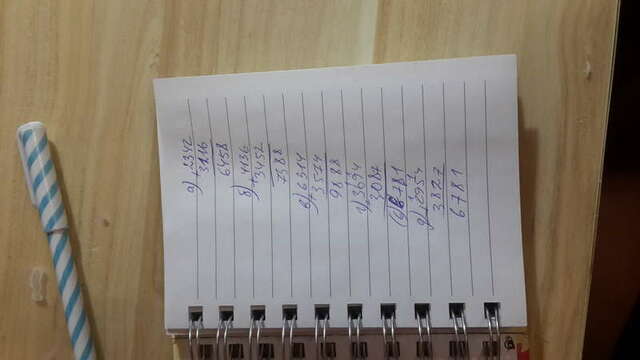 а) +2342
6458
б) +4136
3452
7588
в) +6314
3574
9888
1 1
г) +3694
3087
6781
1 1
д) +2954
3827
6781